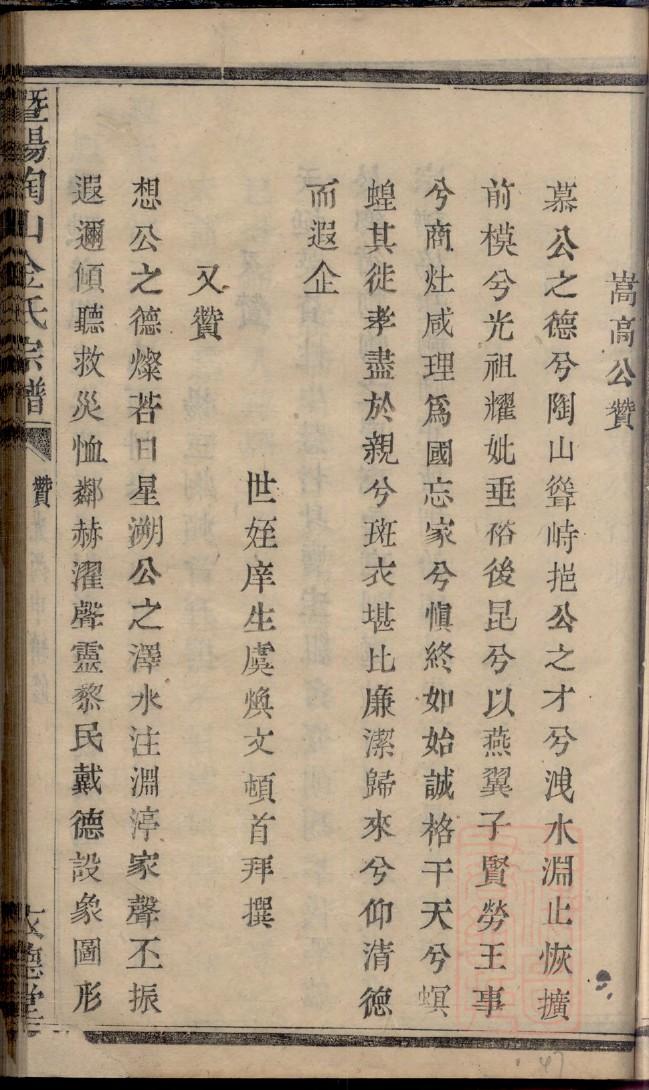 嵩高公贊
慕公之德兮陶山聳峙挹公之才兮洩水淵止恢擴
前模兮光祖耀妣垂裕後昆兮以燕翼子賢勞王事
兮商灶咸理爲國忘家兮愼終如始誠格于天兮螟
蝗其徙孝盡於親兮斑衣堪比廉潔歸來兮仰清德
而遐企
世姪庠生虞煥文頓首拜撰
又贊
想公之德燦若日星溯公之澤水注淵渟家聲丕振
遐邇傾聽救災恤鄰赫濯聲靈黎民戴德設象圖形
暨陽陶山金氏宗譜
贊
文德堂
47